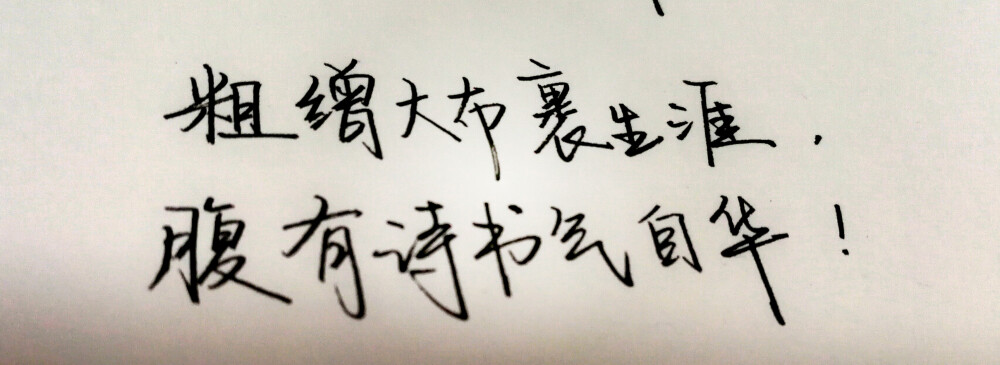 粗缯大布裹生涯，
腹有诗书气自华！